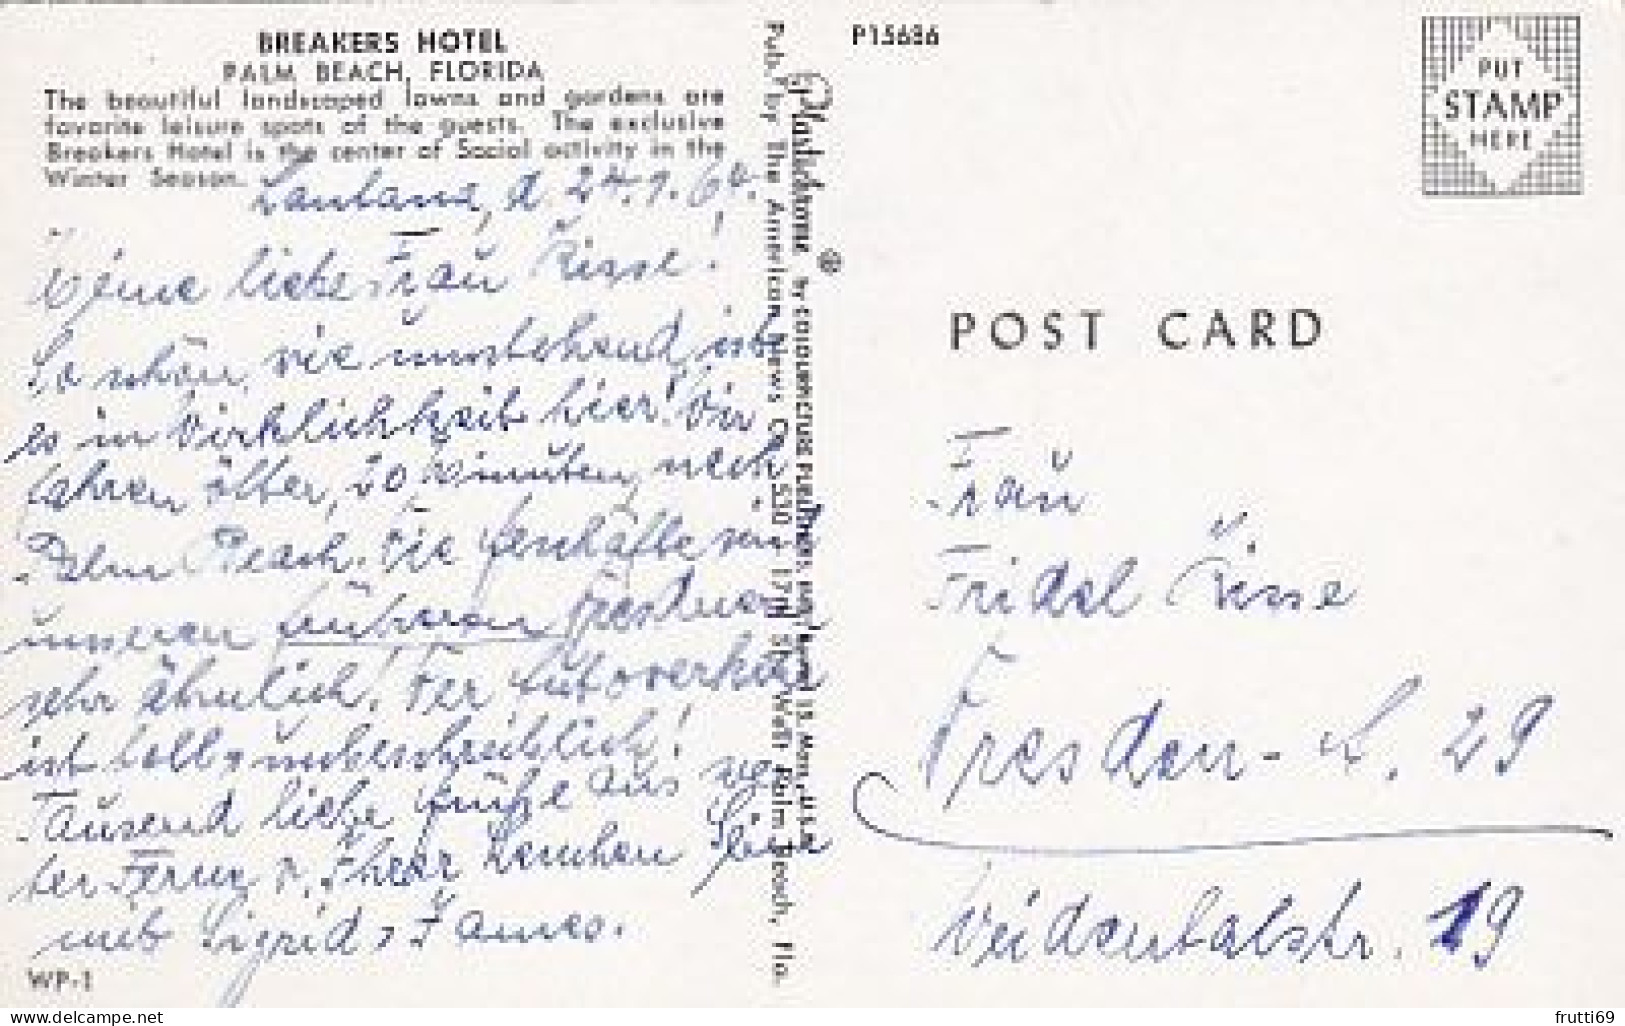 BREAKERS HOTEL
PALM BEACH, FLORIDA
The beautiful landscaped lawns and gardens are
favorite leisure spots of the guests. The exclusive
Breakers Hotel is the center of Social activity in the
Winter Season.
Lantana, d. 24.1.60.
Meine liebe Frau Risse!
So schön, wie umstehend, ist
es in Wirklichkeit hier! Wir
fahren öfter, 20 Minuten, nach
Palm Beach. Die Geschäfte sind
unseren früheren Dresdner
sehr ähnlich! Der Autoverkehr
ist toll, unbeschreiblich!
Tausend liebe Grüße aus wei
ter Ferne v. Ihrer Lenchen
mit Sigrid, James.
WP-1
Pub. by The American News Co., 530 - 17th St., West Palm Beach, Fla.
Plastichrome ® by COLOURPICTURE PUBLISHERS, Boston 15, Mass., U.S.A.
P15636
PUT
STAMP
HERE
POST CARD
Frau
Fridel Risse
Dresden - A. 29
Weidentalstr. 19
frutti69
www.delcampe.net